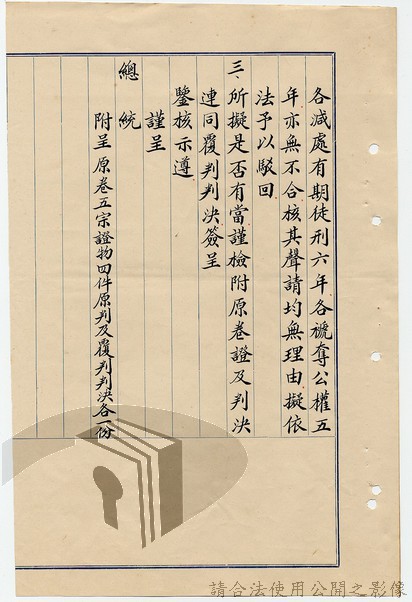 各減處有期徒刑六年各褫奪公權五
年亦無不合核其聲請均無理由擬依
法予以駁回
三、所擬是否有當謹檢附原卷證及判決
連同覆判判決簽呈
鑒核示遵
謹呈
總統
附呈原卷五宗證物四件原判及覆判判決各一份
請合法使用公開之影像